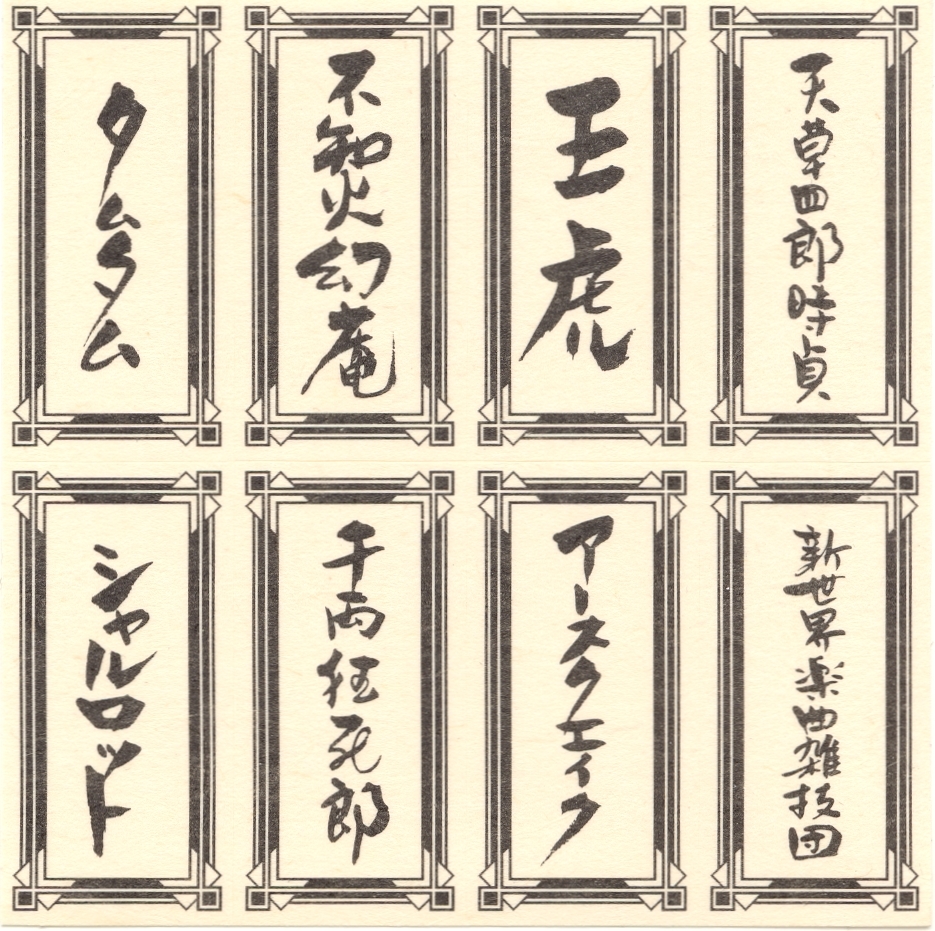 天草四郎時貞
王虎
不知火幻庵
タムタム
新世界楽曲雑技団
アースクエイク
千両狂死郎
シャルロット